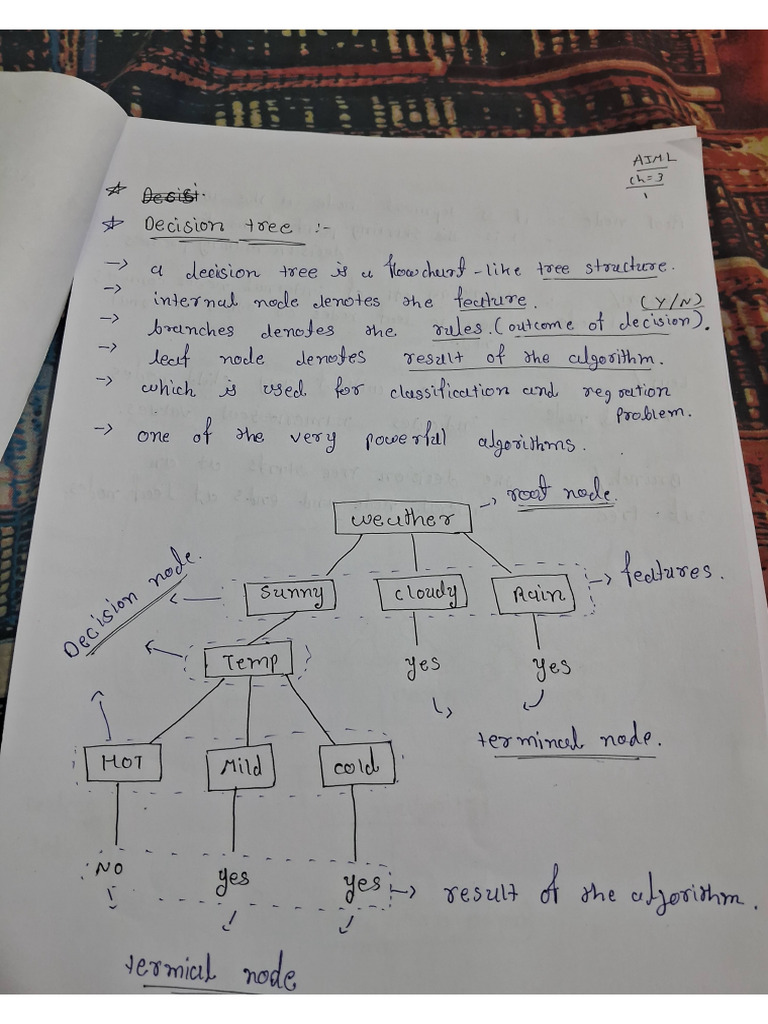 AIML
Ch=3
1
Desist.
Decision tree :-
-> a decision tree is a flowchart-like tree structure.
-> internal node denotes the feature. (Y/N)
-> branches denotes the rules. (outcome of decision).
-> leaf node denotes result of the algorithm.
-> which is used for classification and regration
problem.
-> one of the very powerful algorithms.
weather -> root node.
Decision node.
Sunny cloudy Rain -> features.
Temp yes yes
terminal node.
HOT Mild cold
NO yes yes -> result of the algorithm.
termial node